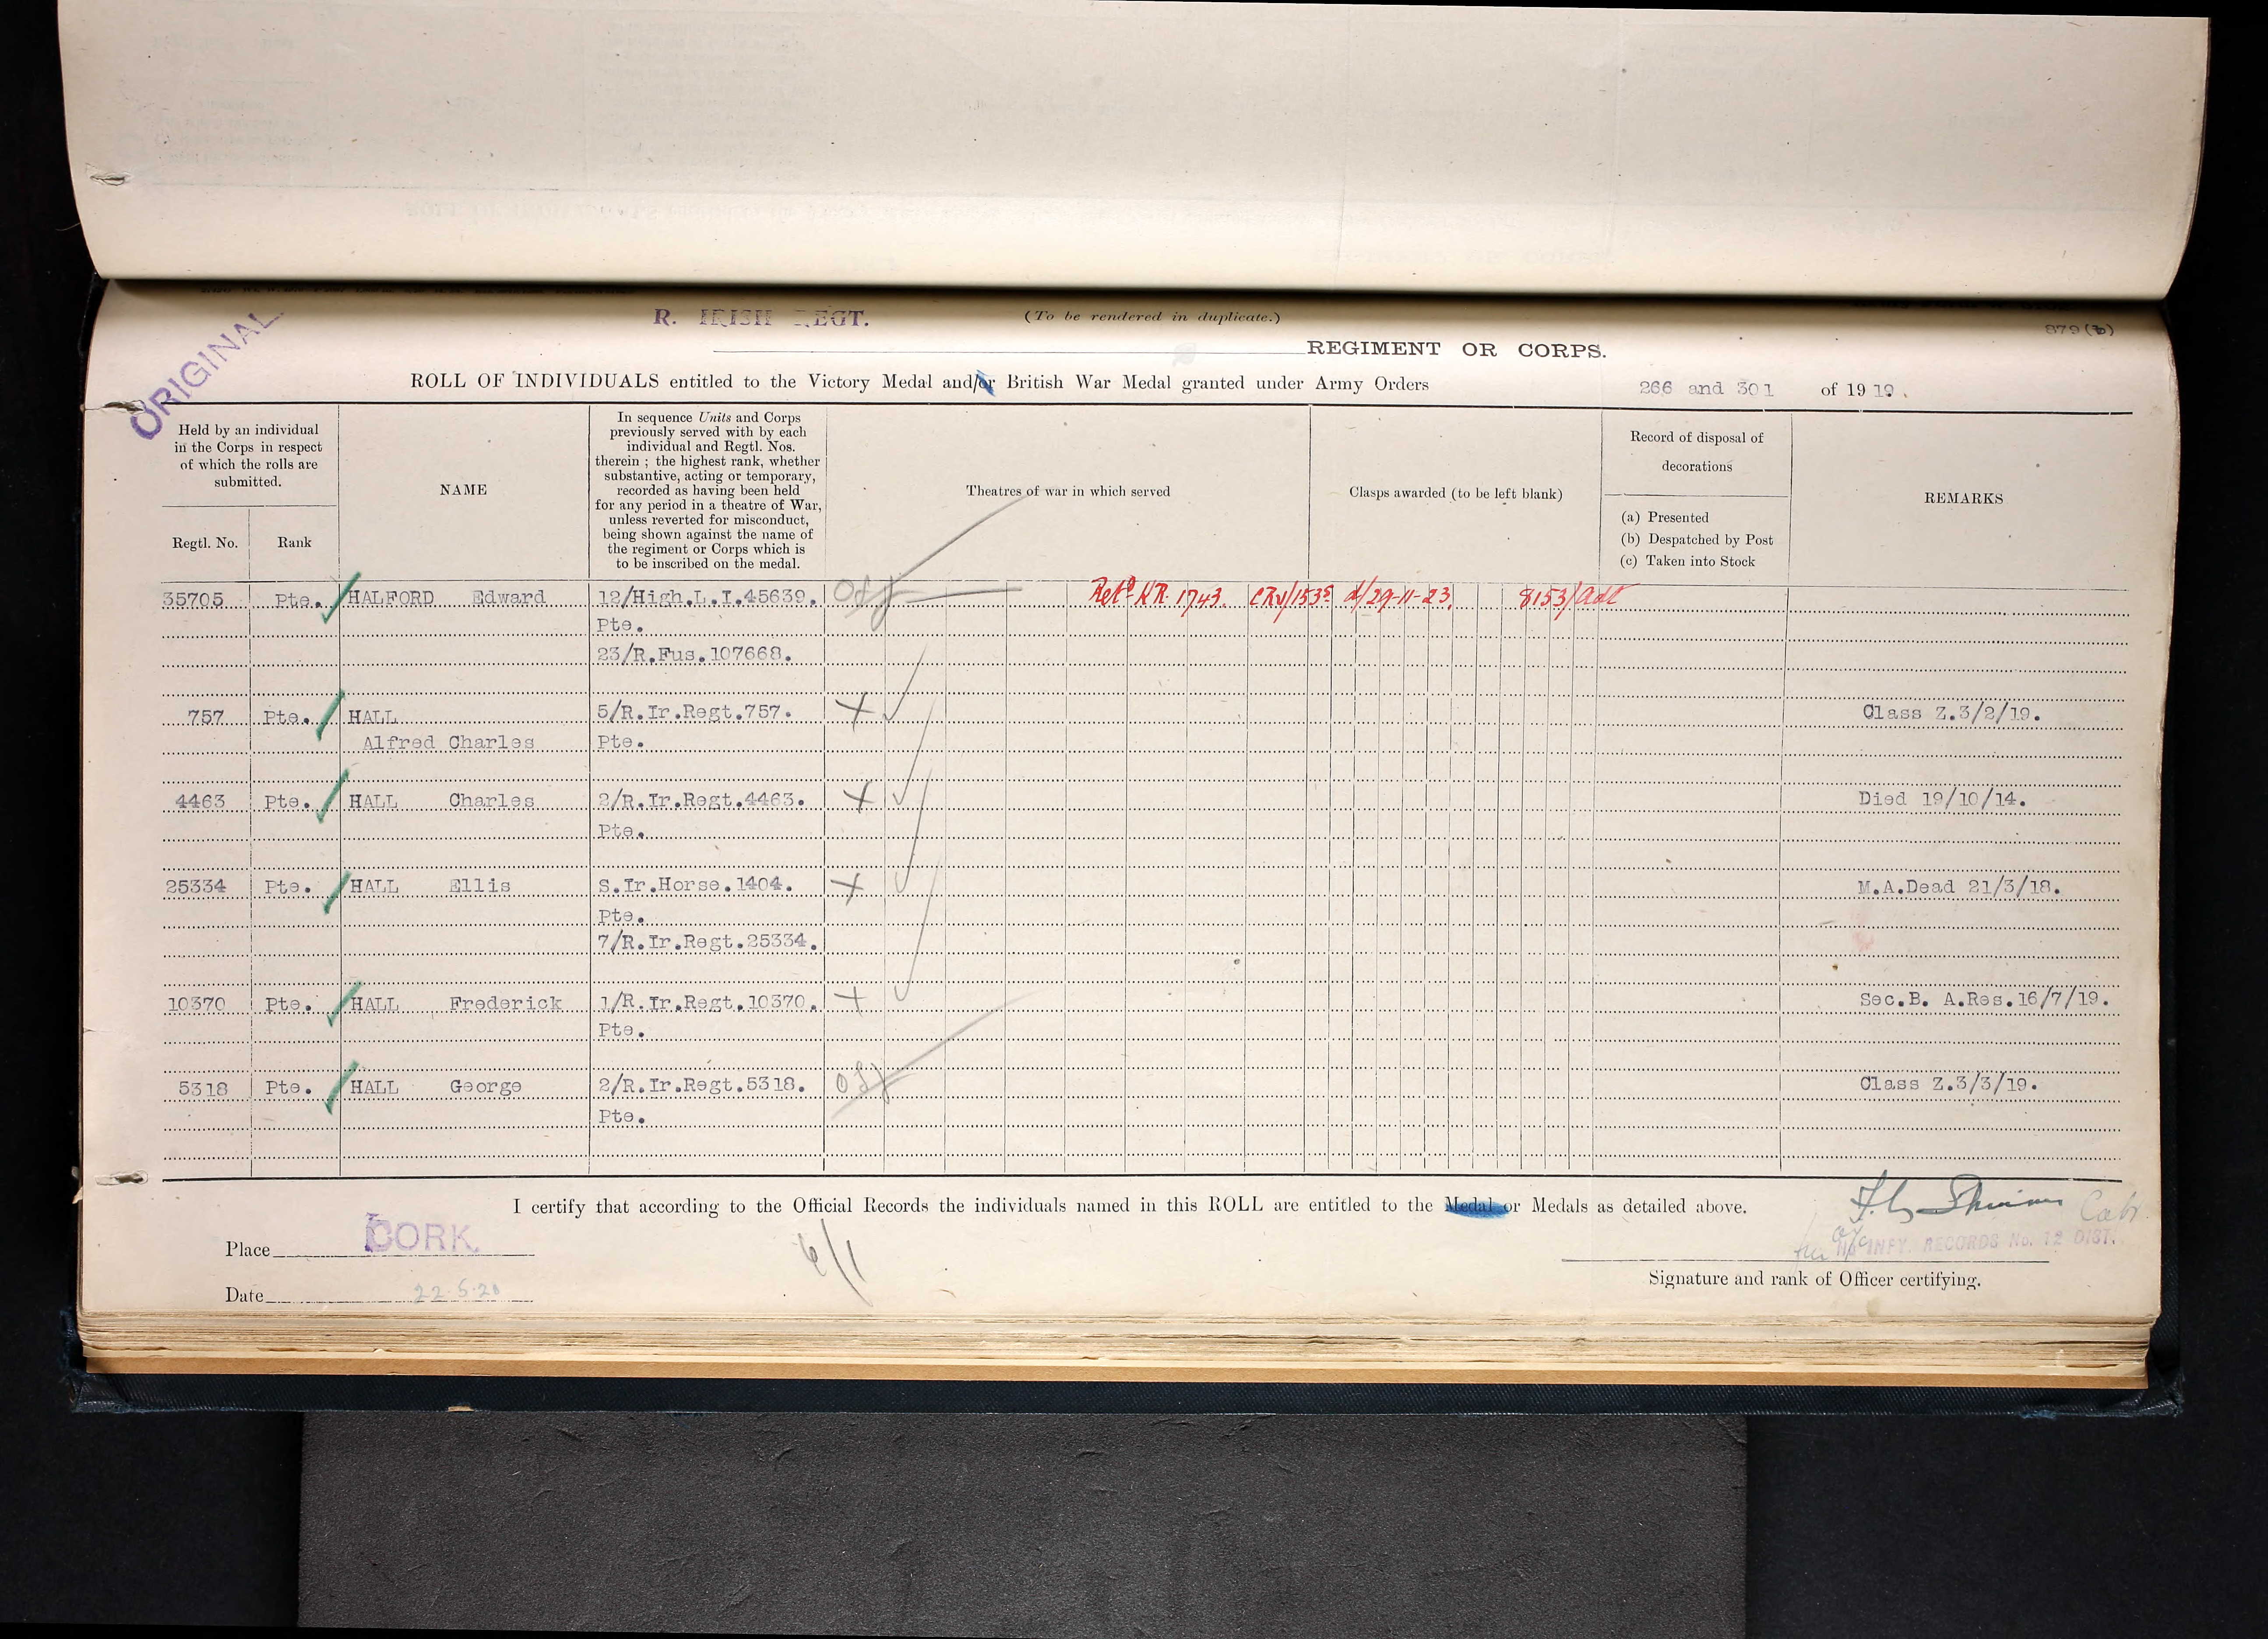 ORIGINAL.
R. IRISH REGT.
(To be rendered in duplicate.)
879(b)
REGIMENT OR CORPS.
ROLL OF INDIVIDUALS entitled to the Victory Medal and/or British War Medal granted under Army Orders 266 and 301 of 1919.
Held by an individual
in the Corps in respect
of which the rolls are
submitted.
Regtl. No.
Rank
NAME
In sequence Units and Corps
previously served with by each
individual and Regtl. Nos.
therein ; the highest rank, whether
substantive, acting or temporary,
recorded as having been held
for any period in a theatre of War,
unless reverted for misconduct,
being shown against the name of
the regiment or Corps which is
to be inscribed on the medal.
Theatres of war in which served
Clasps awarded (to be left blank)
Record of disposal of
decorations
(a) Presented
(b) Despatched by Post
(c) Taken into Stock
REMARKS
35705 Pte. HALFORD Edward 12/High.L.I.45639. Retd KR 1743. CRV/1535 d/29-11-23. 8153/adt
Pte.
23/R.Fus.107668.
757 Pte. HALL 5/R.Ir.Regt.757. Class Z.3/2/19.
Alfred Charles Pte.
4463 Pte. HALL Charles 2/R.Ir.Regt.4463. Died 19/10/14.
Pte.
25334 Pte. HALL Ellis S.Ir.Horse.1404. M.A.Dead 21/3/18.
Pte.
7/R.Ir.Regt.25334.
10370 Pte. HALL Frederick 1/R.Ir.Regt.10370. Sec.B. A.Res.16/7/19.
Pte.
5318 Pte. HALL George 2/R.Ir.Regt.5318. Class Z.3/3/19.
Pte.
I certify that according to the Official Records the individuals named in this ROLL are entitled to the Medal or Medals as detailed above.
Place CORK.
6/1
INFY. RECORDS No. 12 DIST.
Signature and rank of Officer certifying.
Date 22.5.20